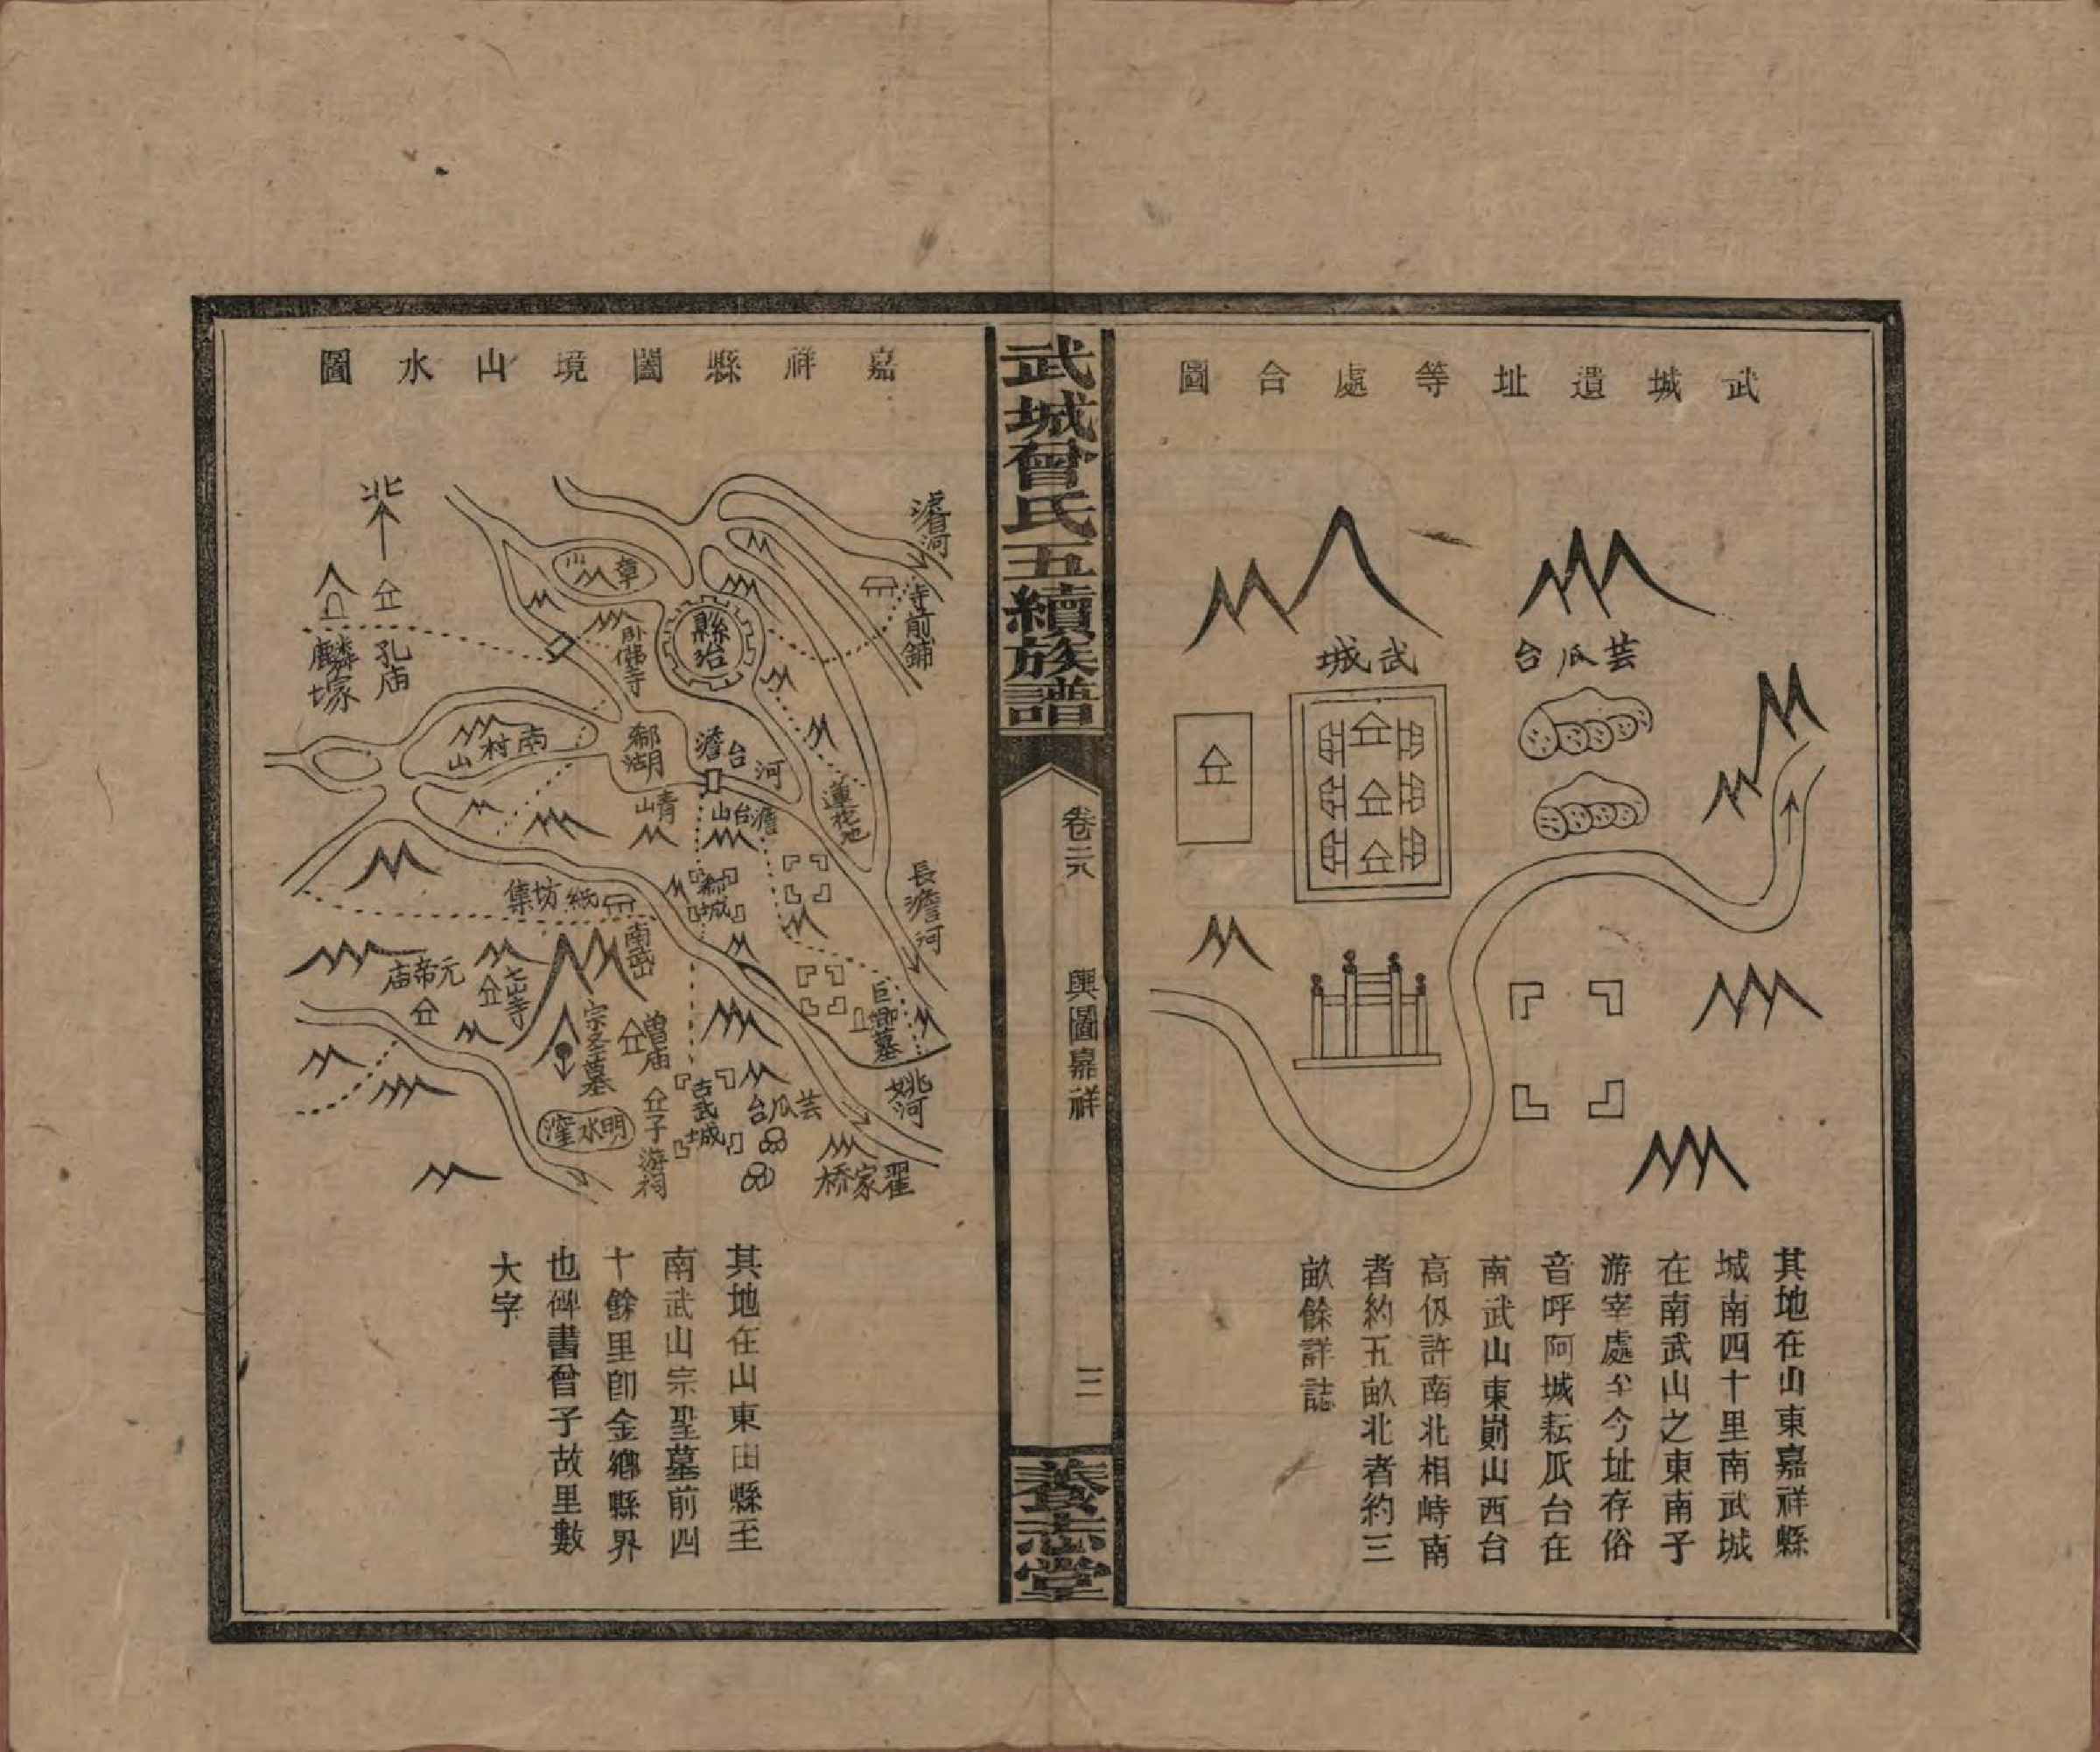 武城遺址等處合圖
芸瓜台
武城
其地在山東嘉祥縣
城南四十里南武城
在南武山之東南子
游宰處至今址存俗
音呼阿城耘瓜台在
南武山東崱山西台
高仭許南北相峙南
者約五畝北者約三
畝餘詳誌
武城曾氏五續族譜
卷二
輿圖嘉祥
三
養志堂
嘉祥縣闔境山水圖
澹河
寺前鋪
北
孔庙
麟塚
章山
縣治
卧佛寺
南村山
鄒湖
澹台河
青山
澹台山
蓮花池
長澹河
紙坊集
城
南武山
元帝庙
七山寺
宗圣墓
曾庙
巨卿墓
姚河
子游祠
古武城
芸瓜台
明水灌
翟家桥
其地在山東由縣至
南武山宗聖墓前四
十餘里卽金鄕縣界
也碑書曾子故里數
大字